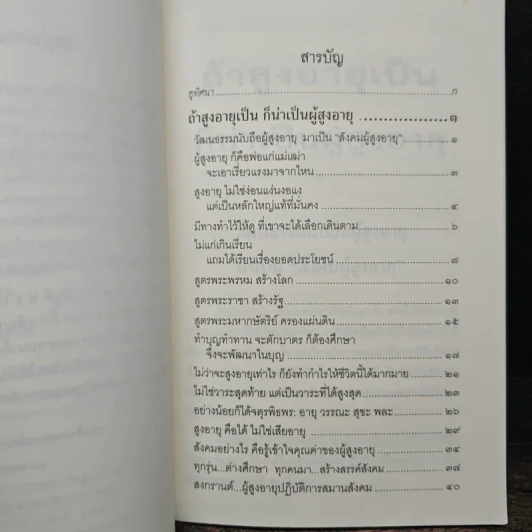 สารบัญ
สูทัศนา ก
ถ้าสูงอายุเป็น ก็น่าเป็นผู้สูงอายุ ๑
วัฒนธรรมนับถือผู้สูงอายุ มาเป็น "สังคมผู้สูงอายุ" ๑
ผู้สูงอายุ ก็คือพ่อแก่แม่เฒ่า
จะเอาเรี่ยวแรงมาจากไหน ๓
สูงอายุ ไม่ใช่ง่อนแง่นงอแง
แต่เป็นหลักใหญ่แท้ที่มั่นคง ๔
มีทางทำไว้ให้ดู ที่เขาจะได้เลือกเดินตาม ๖
ไม่แก่เกินเรียน
แถมได้เรียนเรื่องยอดประโยชน์ ๗
สูตรพระพรหม สร้างโลก ๑๐
สูตรพระราชา สร้างรัฐ ๑๓
สูตรพระมหากษัตริย์ ครองแผ่นดิน ๑๕
ทำบุญทำทาน จะตักบาตร ก็ต้องศึกษา
จึงจะพัฒนาในบุญ ๑๗
ไม่ว่าจะสูงอายุเท่าไร ก็ยังทำกำไรให้ชีวิตนี้ได้มากมาย ๒๑
ไม่ใช่วาระสุดท้าย แต่เป็นวาระที่ได้สูงสุด ๒๓
อย่างน้อยก็ได้จตุรพิธพร: อายุ วรรณะ สุขะ พละ ๒๖
สูงอายุ คือได้ ไม่ใช่เสียอายุ ๒๙
สังคมอย่างไร คือรู้เข้าใจคุณค่าของผู้สูงอายุ ๓๔
ทุกรุ่น...ต่างศึกษา ทุกคนมา...สร้างสรรค์สังคม ๓๗
สงกรานต์...ผู้สูงอายุปฏิบัติการสมานสังคม ๔๐